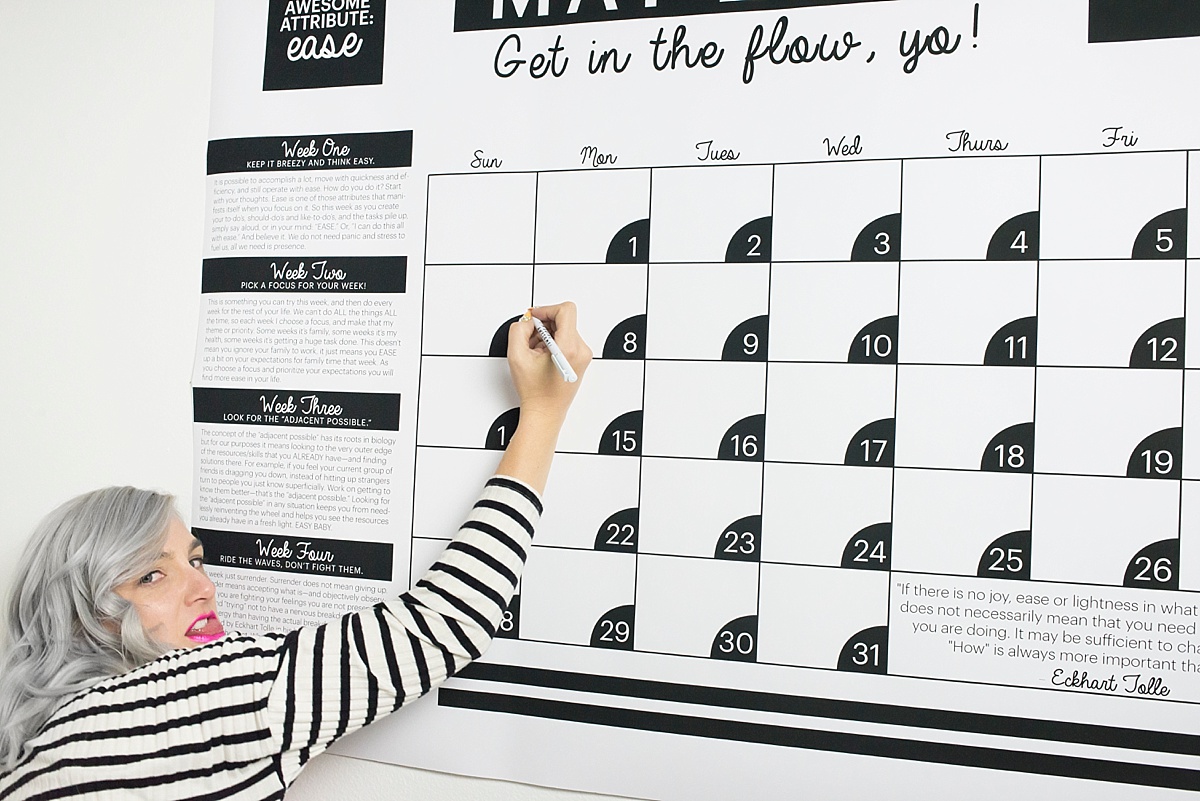 AWESOME
ATTRIBUTE:
ease
Get in the flow, yo!
Week One
KEEP IT BREEZY AND THINK EASY.
It is possible to accomplish a lot, move with quickness and ef-
ficiency, and still operate with ease. How do you do it? Start
with your thoughts. Ease is one of those attributes that mani-
fests itself when you focus on it. So this week as you create
your to-do's, should-do's and like-to-do's, and the tasks pile up,
simply say aloud, or in your mind: "EASE." Or, "I can do this all
with ease." And believe it. We do not need panic and stress to
fuel us, all we need is presence.
Week Two
PICK A FOCUS FOR YOUR WEEK!
This is something you can try this week, and then do every
week for the rest of your life. We can't do ALL the things ALL
the time, so each week I choose a focus, and make that my
theme or priority. Some weeks it's family, some weeks it's my
health, some weeks it's getting a huge task done. This doesn't
mean you ignore your family to work, it just means you EASE
up a bit on your expectations for family time that week. As
you choose a focus and prioritize your expectations you will
find more ease in your life.
Week Three
LOOK FOR THE "ADJACENT POSSIBLE."
The concept of the "adjacent possible" has its roots in biology
but for our purposes it means looking to the very outer edge
of the resources/skills that you ALREADY have—and finding
solutions there. For example, if you feel your current group of
friends is dragging you down, instead of hitting up strangers
turn to people you just know superficially. Work on getting to
know them better—that's the "adjacent possible." Looking for
the "adjacent possible" in any situation keeps you from need-
lessly reinventing the wheel and helps you see the resources
you already have in a fresh light. EASY BABY.
Week Four
RIDE THE WAVES, DON'T FIGHT THEM.
week just surrender. Surrender does not mean giving up.
means accepting what is—and objectively
you are fighting your feelings you are not
"trying" not to have a nervous
than having the actual
by Eckhart Tolle
Sun Mon Tues Wed Thurs Fri
1 2 3 4 5
8 9 10 11 12
1 15 16 17 18 19
22 23 24 25 26
8 29 30 31
"If there is no joy, ease or lightness in what
does not necessarily mean that you need
you are doing. It may be sufficient to
"How" is always more important
- Eckhart Tolle